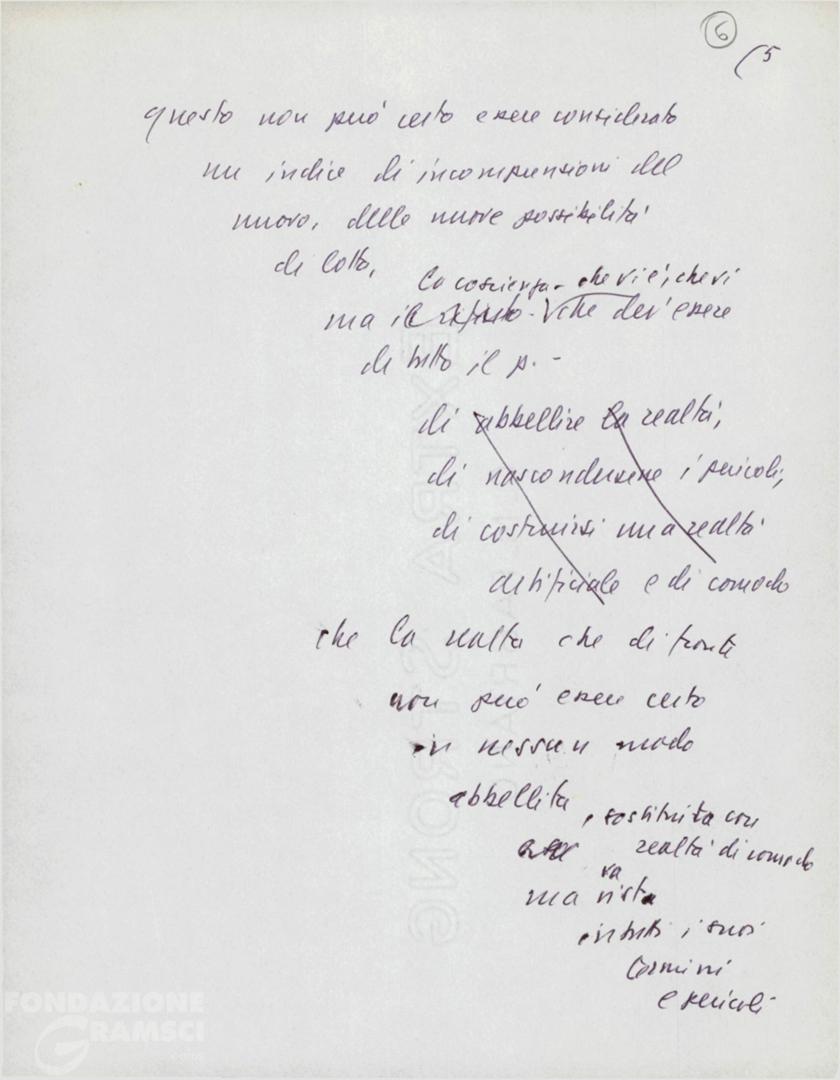 6
(5
questo non può certo essere considerato
un indice di incomprensioni del
nuovo, delle nuove possibilità
di lotta,
la coscienza - che vi è, che vi
ma il rifiuto - che dev'essere
di tutto il p. -
di abbellire la realtà,
di nasconderne i pericoli,
di costruirsi una realtà
artificiale e di comodo
che la realtà che di fronte
non può essere certo
in nessun modo
abbellita, sostituita con
realtà di comodo
va
ma vista
in tutti i suoi
termini
e pericoli
EXTRA STRONG
FONDAZIONE
GRAMSCI